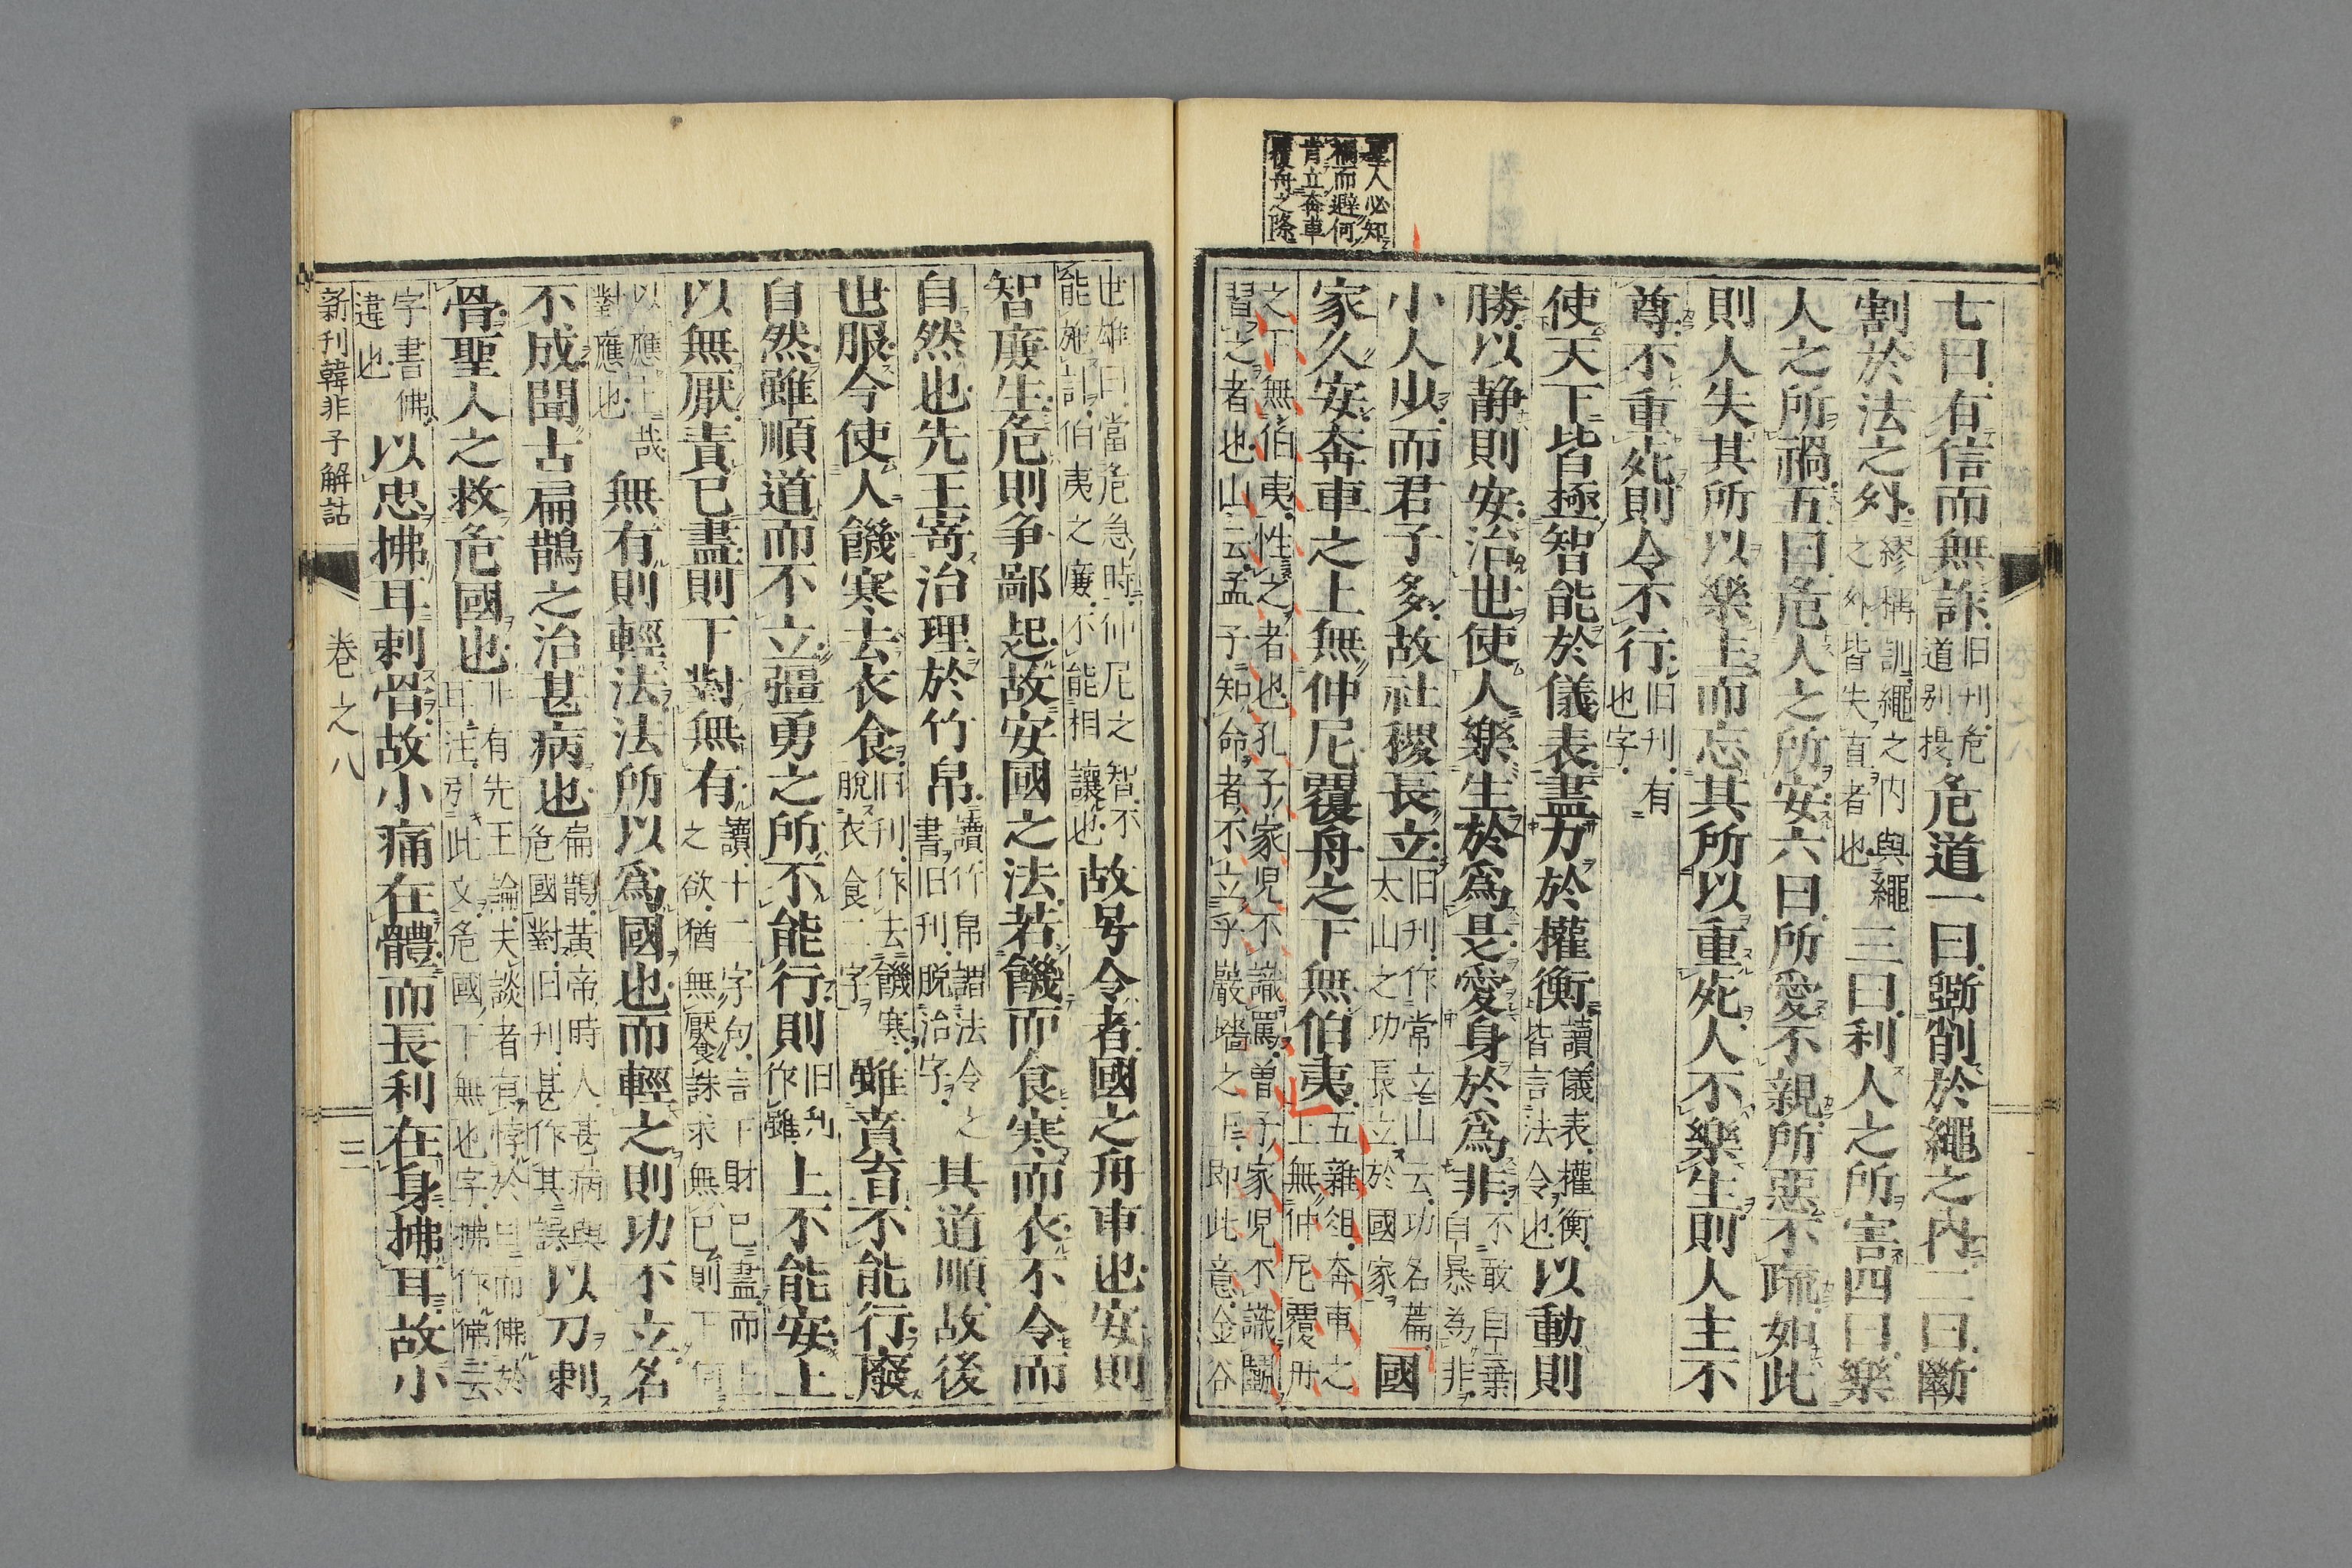 聖人必知
禍而避何
肯立奔車
覆舟之際
七曰有信而無詐旧刊危道別提危道一曰斲削於繩之內二曰斷
割於法之外繆稱訓繩之内與繩之外皆失直者也三曰利人之所害四曰樂
人之所禍五曰危人之所安六曰所愛不親所惡不疏如此
則人失其所以樂生而忘其所以重死人不樂生則人主不
尊不重死則令不行旧刊有也字
使天下皆極智能於儀表盡力於權衡讀儀表權衡皆言法令也以動則
勝以静則安治世使人樂生於為是愛身於為非不敢自棄自暴為非
小人少而君子多故社稷長立旧刊作常立山云功名篇太山之功長立於國家國
家久安奔車之上無仲尼覆舟之下無伯夷五雜俎奔車之上無仲尼覆舟
之下無伯夷性之者也孔子家児不識罵曽子家児不識鬬
習之者也山云孟子知命者不立乎嚴墻之下即此意金谷
世雄曰當危急時仲尼之智不
能施計伯夷之廉不能相讓也故号令者國之舟車也安則
智廉生危則争鄙起故安國之法若饑而食寒而衣不令而
自然也先王寄治理於竹帛讀竹帛謂法令之書旧刊脱治字其道順故後
世服今使人饑寒去衣食旧刊作去饑寒脱衣食二字雖賁育不能行廢
自然雖順道而不立彊勇之所不能行則旧刊作雖上不能安上
以無厭責已盡則下對無有讀十二字句言下財已盡而上之欲猶無厭誅求無已則下何
以應上哉對應也無有則輕法法所以為國也而輕之則功不立名
不成聞古扁鵲之治甚病也扁鵲黃帝時人甚病與危國對旧刊甚作其誤以刀刺
骨聖人之救危國也非有先王論夫談者有悖於目而佛於耳注引此文危國下無也字拂作佛云
字書佛違也以忠拂耳刺骨故小痛在體而長利在身拂耳故小
新刊韓非子解詁　卷之八　三